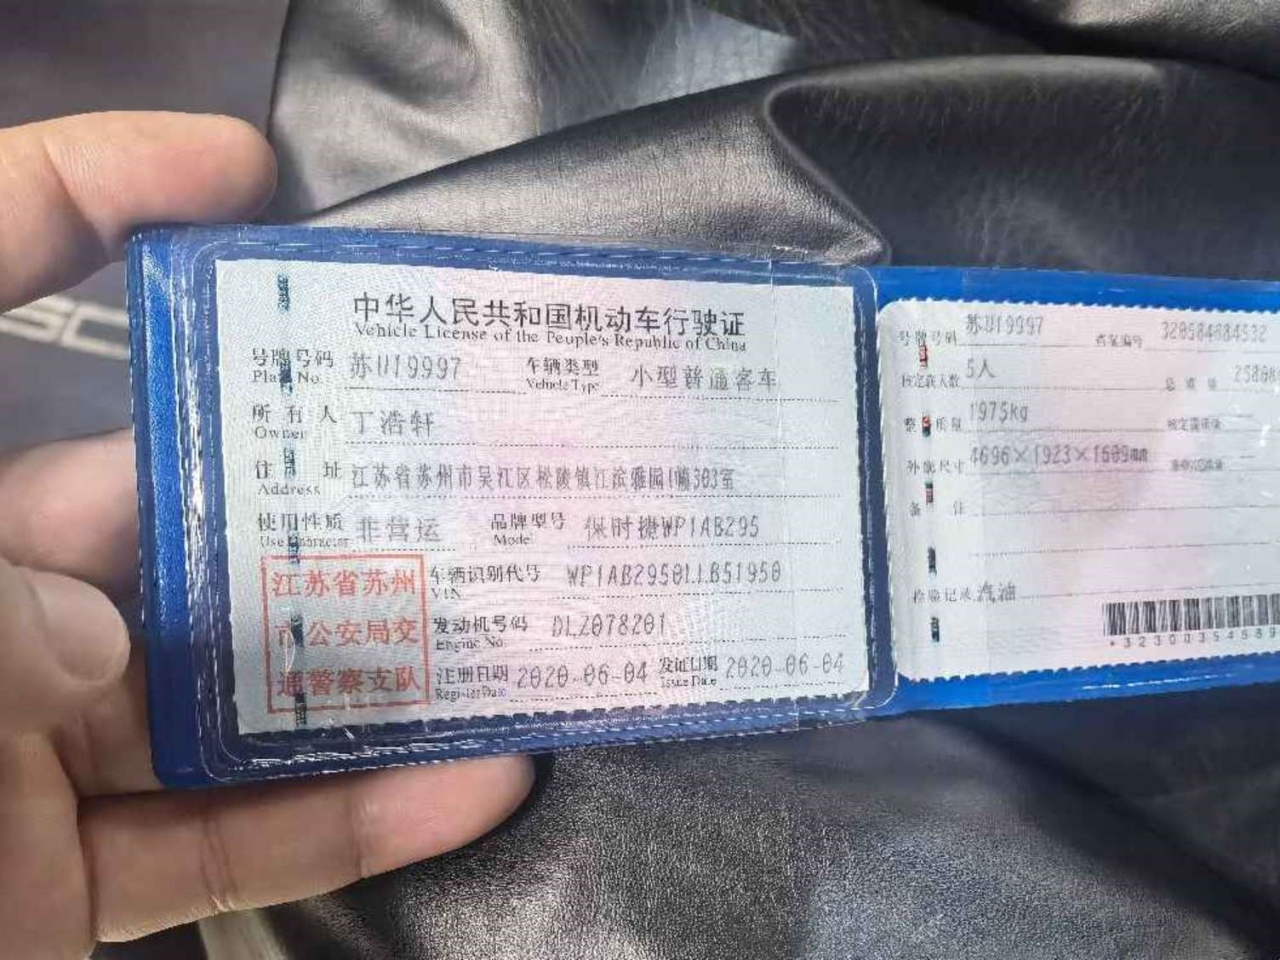 中华人民共和国机动车行驶证
Vehicle License of the People's Republic of China
号牌号码 苏U19997 车辆类型 小型普通客车
Plate No. Vehicle Type
所有人 丁浩轩
Owner
住址 江苏省苏州市吴江区松陵镇江滨雅园1幢303室
Address
使用性质 非营运 品牌型号 保时捷WP1AB295
Use Character Model
江苏省苏州
市公安局交
通警察支队
车辆识别代号 WP1AB2950LLB51950
VIN
发动机号码 DLZ078201
Engine No.
注册日期 2020-06-04 发证日期 2020-06-04
Register Date Issue Date
号牌号码 苏U19997 档案编号 320584884532
核定载人数 5人 总质量
整备质量 1975kg 核定载质量
外廓尺寸 4696×1923×1609mm
备注
检验记录 汽油